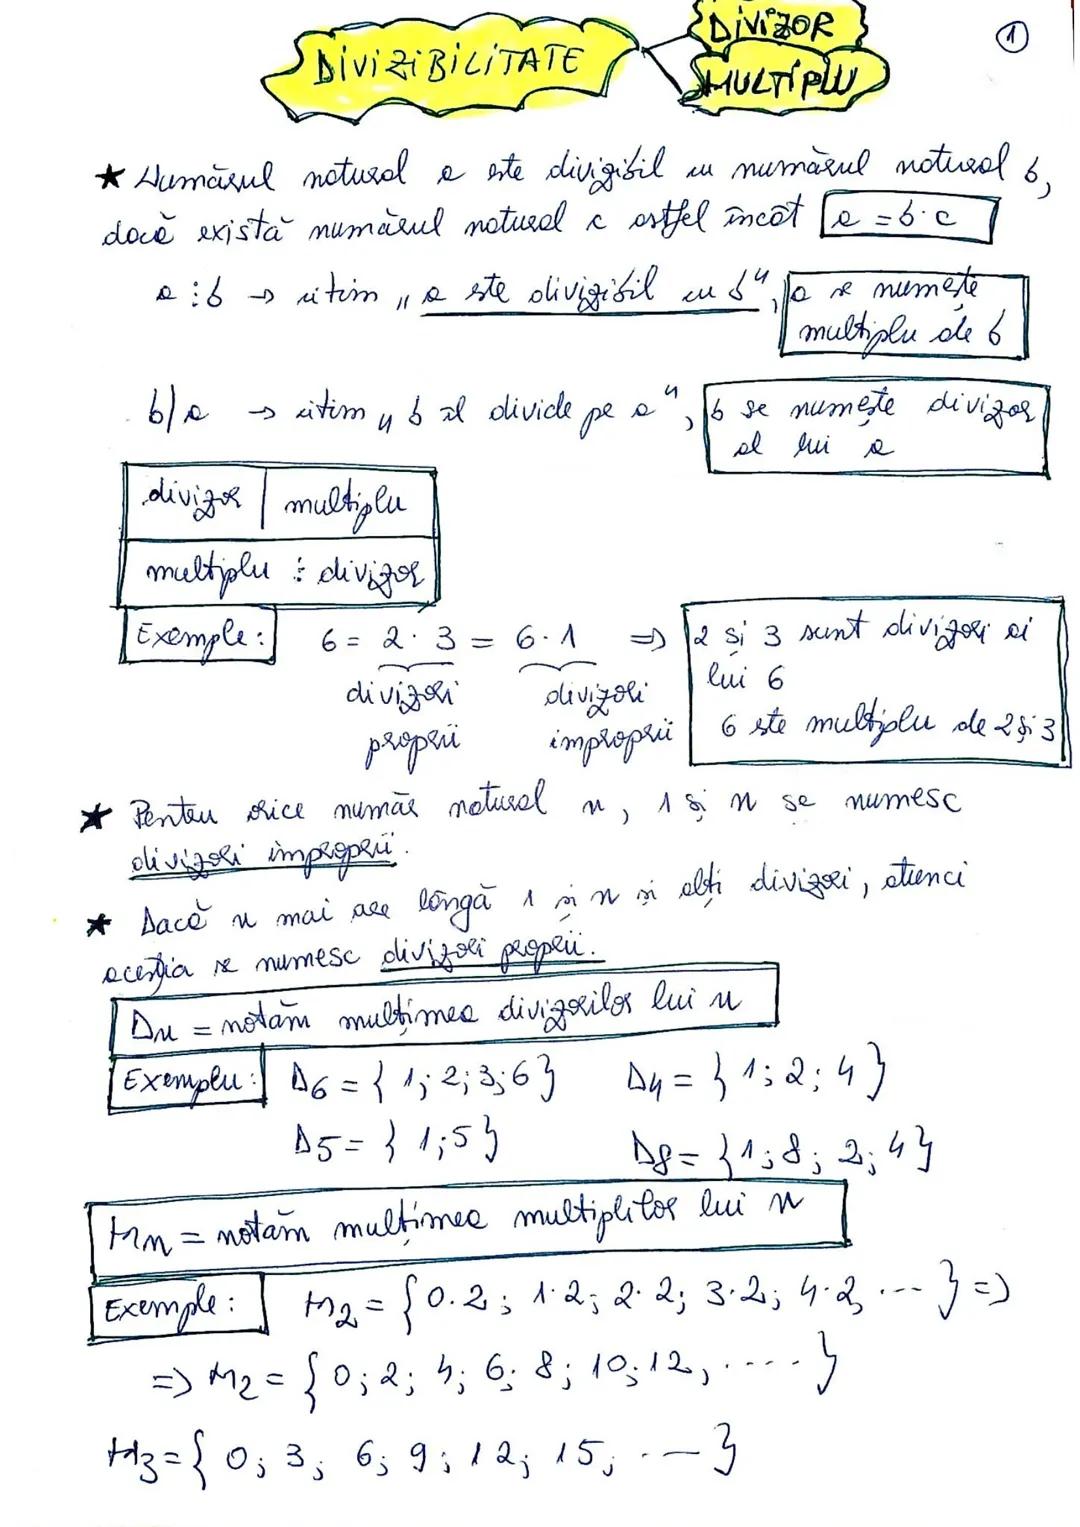 DIVIZIBILITATE
DIVIZOR
MULTIPLU
1
★ Numărul natural a este divizibil cu numărul natural b,
dacă există numărul natural c astfel încât a = b·c
a ⋮ b → citim „a este divizibil cu b", a se numește
multiplu de b
b/a → citim „b îl divide pe a", b se numește divizor
al lui a
divizor | multiplu
multiplu ⋮ divizor
Exemple: 6 = 2·3 = 6·1 => 2 și 3 sunt divizori ai
lui 6
divizori divizori
proprii improprii 6 este multiplu de 2 și 3
★ Pentru orice număr natural n, 1 și n se numesc
divizori improprii.
★ Dacă n mai are lângă 1 și n și alți divizori, atunci
aceștia se numesc divizori proprii.
Dn = notăm mulțimea divizorilor lui n
Exemplu: D6 = { 1; 2; 3; 6 } D4 = { 1; 2; 4 }
D5 = { 1; 5 } D8 = { 1; 8; 2; 4 }
Mn = notăm mulțimea multiplilor lui n
Exemple: M2 = { 0·2; 1·2; 2·2; 3·2; 4·2, ... } =>
=> M2 = { 0; 2; 4; 6; 8; 10; 12, .... }
M3 = { 0; 3; 6; 9; 12; 15; ... }